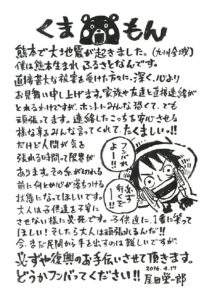 くまもん
熊本で大地震が起きました。(九州全域)
僕は熊本生まれ、ふるさとなんです。
直接甚大な被害を受けた方々に、深く、心より
お見舞い申し上げます。家族や友達と直接連絡が
とれるわけですが、さったみんな恐くて、でも
頑張ってます。連絡したこっちを安心させる
様な事をみんな言ってくれて、たくましい!!
だけど人間が気を
張れる時間って限界が
あります。その糸が切れる
前に何とか心が落ちつける
状態になってほしいです。
大人は子供達を不安に
させない様に必死です。子供達に、1番に笑って
ほしい!そしたら大人は頑張れるんだ!!
今、まだ民間から手を出すのは難しいですが、
必ずや復興のお手伝いさせて頂きます。
どうかフンバってください!!
フンバれよ!!
必ず行くぞ!!
2016.4.17
尾田栄一郎